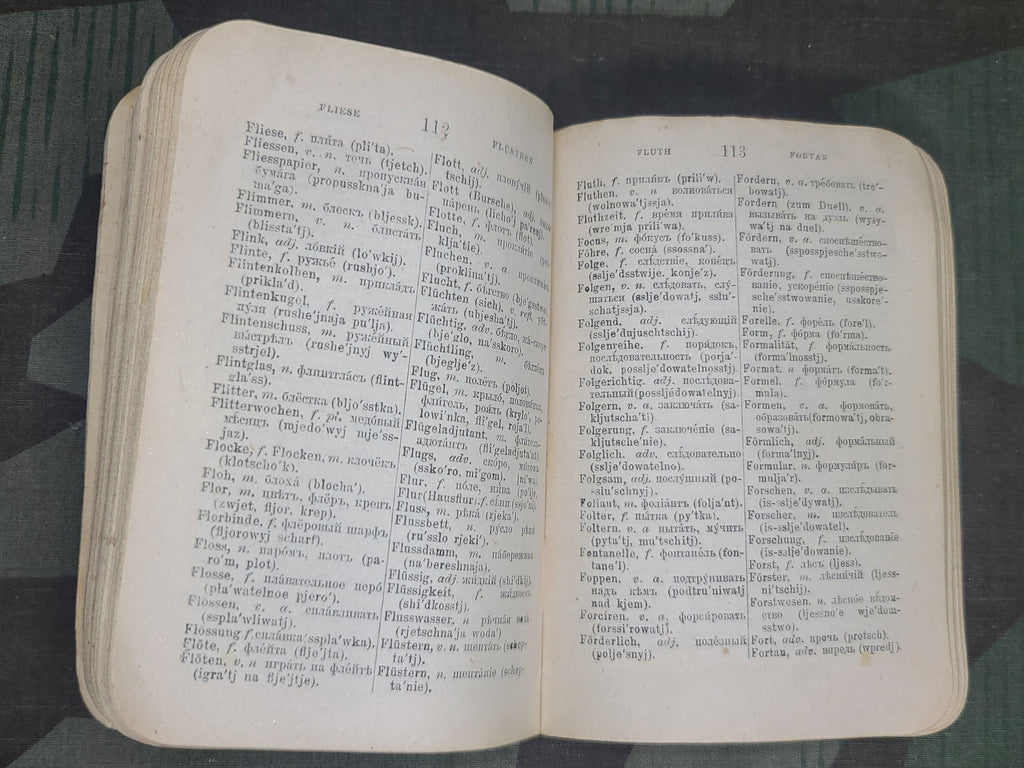 FLIESE 112 FLÜSTERN
Fliese, f. пли́та (pli'ta).
Fliessen, v. n. течь (tjetch).
Fliesspapier, n. пропускна́я
бума́га (propusskna'ja bu-
ma'ga).
Flimmer, m. блескъ (bljessk).
Flimmern, v. n. блиста́ть
(blissta'tj).
Flink, adj. ло́вкій (lo'wkij).
Flinte, f. ружьё (rushjo').
Flintenkolben, m. прикла́дъ
(prikla'd).
Flintenkugel, f. руже́йная
пу́ля (rushe'jnaja pu'lja).
Flintenschuss, m. руже́йный
вы́стрѣлъ (rushe'jnyj wy'-
sstrjel).
Flintglas, n. флинтгла́съ (flint-
gla'ss).
Flitter, m. блёстка (bljo'sstka).
Flitterwochen, f. pl. медо́вый
мѣ́сяцъ (mjedo'wyj mje'ss-
jaz).
Flocke, f. Flocken, m. клочёкъ
(klotscho'k).
Floh, m. блоха́ (blocha').
Flor, m. цвѣтъ, флёръ, крепъ
(zwjet, fljor, krep).
Florbinde, f. флёровый шарфъ
(fljorowyj scharf).
Floss, n. паро́мъ, плотъ (pa-
ro'm, plot).
Flosse, f. пла́вательное перо́
(pla'watelnoe pjero').
Flössen, v. a. спла́вливать
(sspla'wliwatj).
Flössung f. спла́вка sspla'wka).
Flöte, f. фле́йта (flje'jta).
Flöten, v. n игра́ть на фле́йтѣ
(igra'tj na flje'jtje).
Flott, adj. плову́чій
tschij).
Flott (Bursche), adj.
па́рень (licho'j pa'renj).
Flotte, f. флотъ (flot).
Fluch, m. прокля́тіе
klja'tie).
Fluchen, v. a.
(proklina'tj).
Flucht, f. бѣ́гство (bje'gsstwo).
Flüchten (sich), v. refl.
жа́ть (ubjesha'tj).
Flüchtig, adv. бѣ́гло, на́-скоро
(bje'glo, na'sskoro).
Flüchtling, m. бѣгле́цъ
(bjeglje'z).
Flug, m. полётъ (poljot).
Flügel, m. крыло́, полови́нка,
фли́гель, роя́ль (krylo', po-
lowi'nka, fli'gel, roja'l).
Flügeladjutant, m. фли́гель-
адюта́нтъ (fli'geladjuta'nt).
Flugs, adv. ско́ро, ми́гомъ
(ssko'ro, mi'gom). [ni'wa).
Flur, f. по́ле, ни́ва (po'lje,
Flur (Hausflur), f. сѣ́ни (ssje'ni).
Fluss, m. рѣка́ (rjeka').
Flussbett, n. ру́сло рѣки́
(ru'sslo rjeki').
Flussdamm, m. на́бережная
(na'bereshnaja).
Flüssig, adj. жи́дкій (shi'dkij).
Flüssigkeit, f. жи́дкость
(shi'dkosstj).
Flusswasser, n рѣчна́я вода́
(rjetschna'ja woda')
Flüstern, v. n. шепта́ть (schep-
ta'tj).
Flüstern, n. шепта́ніе (schep-
ta'nie).
FLUTH 113 FORTAN
Fluth, f. прили́въ (prili'w).
Fluthen, v. n волнова́ться
(wolnowa'tjssja).
Fluthzeit, f. вре́мя прили́ва
(wre'mja prili'wa).
Focus, m. фо́кусъ (fo'kuss).
Föhre, f. сосна́ (ssossna').
Folge, f. слѣ́дствіе, коне́цъ
(sslje'dsstwije, konje'z).
Folgen, v. n. слѣ́довать, слу́-
шаться (sslje'dowatj, sslu'-
schatjssja).
Folgend, adj. слѣ́дующій
(sslje'dujuschtschij).
Folgenreihe, f. поря́докъ,
послѣ́довательность (porja'-
dok, posslje'dowatelnosstj).
Folgerichtig, adj. послѣ́дова-
тельный (possljé'dowatelnyj).
Folgern, v. a. заключа́ть (sa-
kljutscha'ti)
Folgerung, f. заключе́ніе (sa-
kljutsche'nie).
Folglich. adv. слѣ́довательно
(sslje'dowatelno).
Folgsam, adj. послу́шный (po-
sslu'schnyj).
Foliant, m. фолиа́нтъ (folja'nt).
Folter, f. пы́тка (py'tka).
Foltern, v. a пыта́ть, му́чить
(pyta'tj, mu'tschitj).
Fontanelle, f. фонтане́ль (fon-
tane'l).
Foppen, v. a. подтру́нивать
надъ кѣмъ (podtru'niwatj
nad kjem).
Forciren, v. a. форси́ровать
(forssi'rowatj).
Förderlich, adj. поле́зный
(polje'snyj).
Fordern, v. a. тре́бовать (tre'-
bowatj).
Fordern (zum Duell), v. a.
вызыва́ть на дуэ́ль (wysy-
wa'tj na duel).
Fördern, v. a. споспѣ́шество-
вать (ssposspje'schesstwo-
watj).
Förderung, f. споспѣ́шество-
вание, ускоре́ніе (ssposspje-
sche'sstwowanie, usskore'-
nie).
Forelle, f. форе́ль (fore'l).
Form, f. фо́рма (fo'rma).
Formalität, f. форма́льность
(forma'lnosstj).
Format, n форма́тъ (forma't).
Formel, f. фо́рмула (fo'r-
mula).
Formen, v. a. формова́ть,
образова́ть (formowa'tj, obra-
sowa'tj).
Förmlich, adj. форма́льный
(forma'lnyj).
Formular, n. формуля́ръ (for-
mulja'r).
Forschen, v. a. изслѣ́дывать
(is-sslje'dywatj).
Forscher, m. изслѣ́дователь
(is-sslje'dowatel).
Forschung, f. изслѣ́дование
(is-sslje'dowanie).
Forst, f. лѣсъ (ljess).
Förster, m. лѣсни́чій (ljess-
ni'tschij).
Forstwesen, n. лѣсно́е вѣ́дом-
ство (ljessno'e wje'dom-
sstwo).
Fort, adv. прочь (protsch).
Fortan, adv. впредь (wpredj).